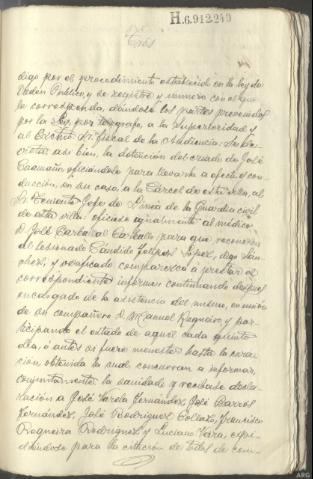 H.6.912.249
Tres
digo por el procedimiento establecido en la ley de
Orden Público, y se registre y numere con el que
le corresponda, dándose los partes prevenidos
por la ley, por telégrafo, a la Superioridad y
al Excmo. Sr. Fiscal de la Audiencia.
cretase así bien, la detención del criado de José
Caamaño, oficiándole para llevarla a efecto y con-
ducción, en su caso, a la Carcel de esta villa, al
Sr. Teniente Jefe de Linea de la Guardia civil
de esta villa; oficiese igualmente al médico
D. José Carballal Carballo para que reconozca
al lesionado Cándido Sopez, digo San-
chez, y verificado comparezca a prestar el
correspondiente informe continuando despues
encargado de la asistencia del mismo, en unión
de su compañero D. Manuel Regueiro, y par-
ticipando el estado de aquel cada quinto
dia, o antes si fuere menester hasta la cura-
ción obtenida la cual comparezcan a informar
conjuntamente la sanidad y recibase decla-
ración a José Varela Fernandez, José Barros
Fernández, José Rodriguez Collazo, Francisco
Regueira Rodriguez, y Luciano Vara, expi-
diendose para la citación de todos de com-
ARG